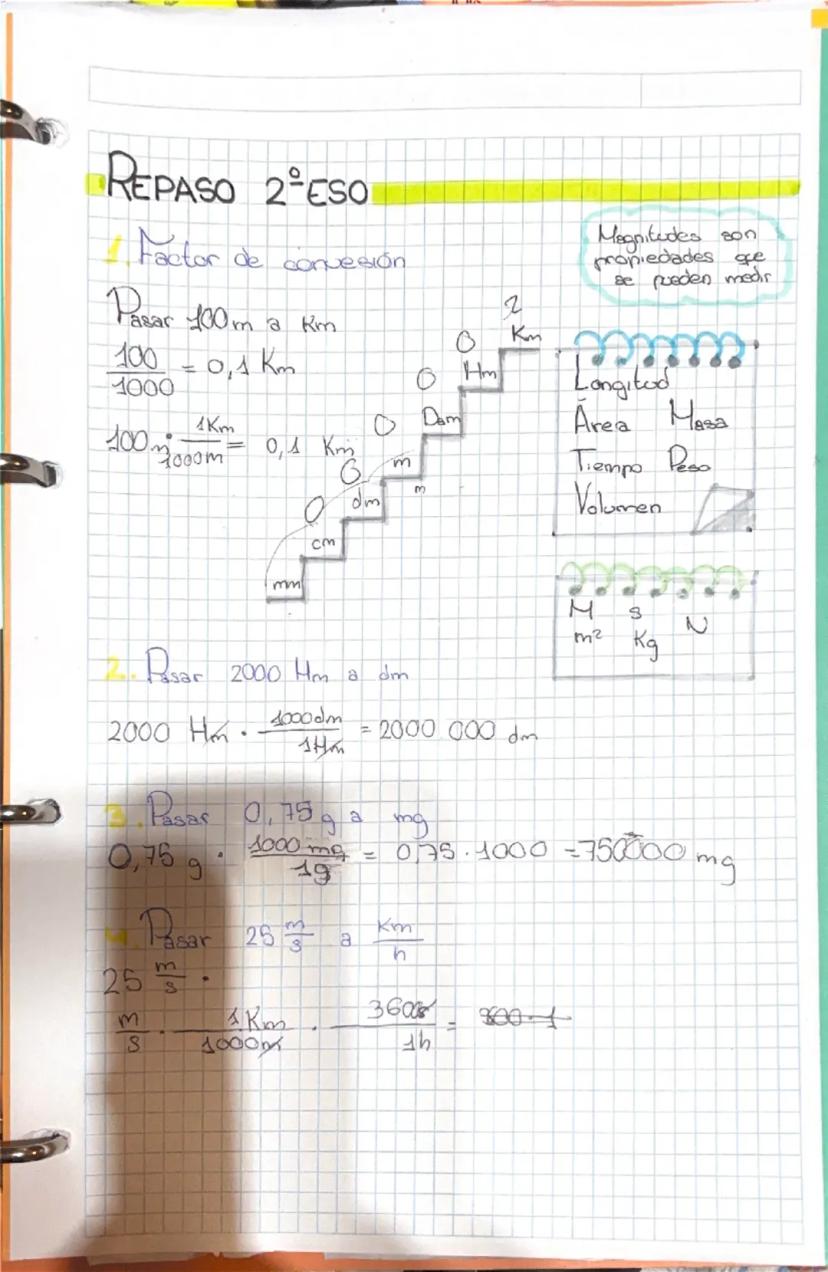 REPASO 2º ESO
1. Factor de convesión
Magnitudes son
propiedades que
se pueden medir
Pasar 100m a Km
100/1000 = 0,1 Km
100m · 1Km/1000m = 0,1 Km
2
Km
0
Hm
0
Dam
0
m
m
0
dm
0
cm
mm
Longitud
Área Masa
Tiempo Peso
Volumen
M s N
m² Kg
2. Pasar 2000 Hm a dm
2000 Hm · 1000dm/1Hm = 2000 000 dm
3. Pasar 0,75 g a mg
0,75 g · 1000 mg/1g = 0,75 · 1000 = 750000 mg
4. Pasar 25 m/s a Km/h
25 m/s ·
m/s · 1Km/1000m · 3600s/1h =